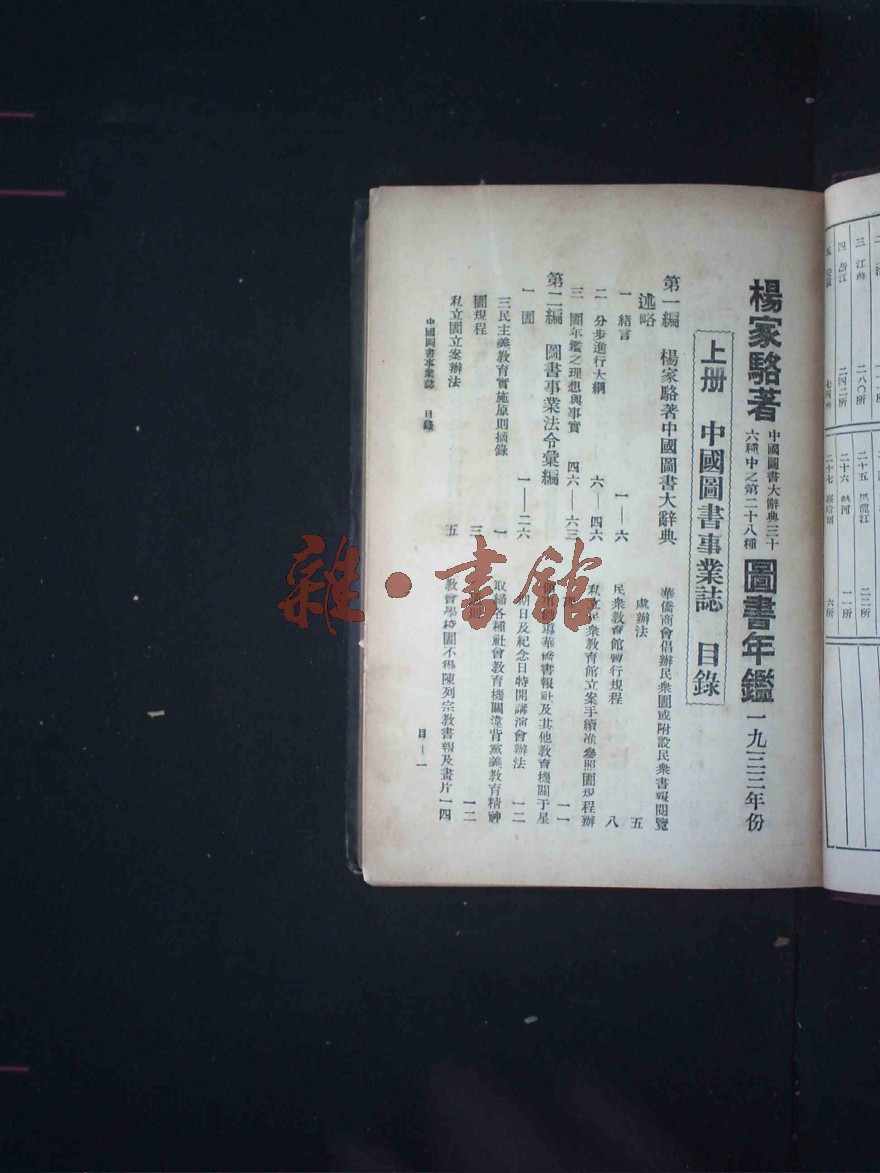 楊家駱著 中國圖書大辭典三十六種中之第二十八種 圖書年鑑 一九三三年份
上册 中國圖書事業誌 目錄
第一編 楊家駱著中國圖書大辭典
述略
一 緒言 一—六
二 分步進行大綱 六—四六
三 圕年鑑之理想與事實 四六—六三
第二編 圖書事業法令彙編 一—二六
一 圕
三民主義教育實施原則摘錄 一
圕規程 三
私立圕立案辦法 五
華僑商會倡辦民衆圕或附設民衆書報閱覽
處辦法 五
民衆教育館暫行規程 八
私立民衆教育館立案手續准參照圕規程辦
一一
導華僑書報社及其他教育機關于星
期日及紀念日特開講演會辦法 一二
取締各種社會教育機關違背黨義教育精神
一二
教會學校圕不得陳列宗教書報及畫片 一四
中國圖書事業誌 目錄
目—一
三 江
四 浙江
二八〇所
二四二所
七四所
二十五 黑龍江
二十六 熱河
二十七 察哈爾
二二所
一一所
六所
雜·書館